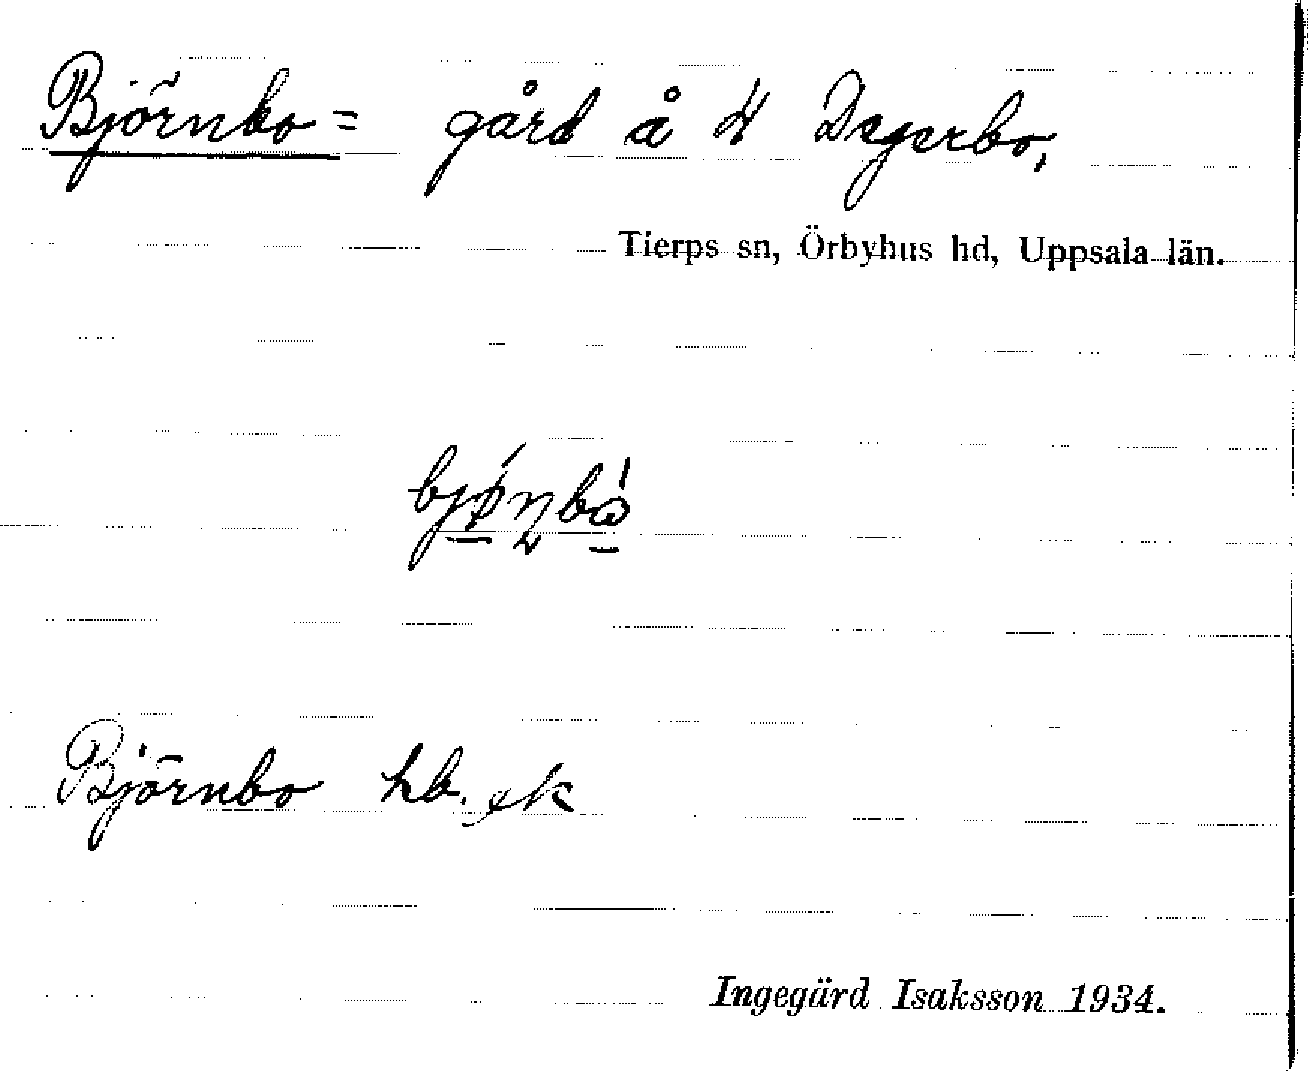 Björnbo = gård å 4 Degerbo,
Tierps sn, Örbyhus hd, Uppsala län.
Björnbo hb. ek
Ingegärd Isaksson 1934.